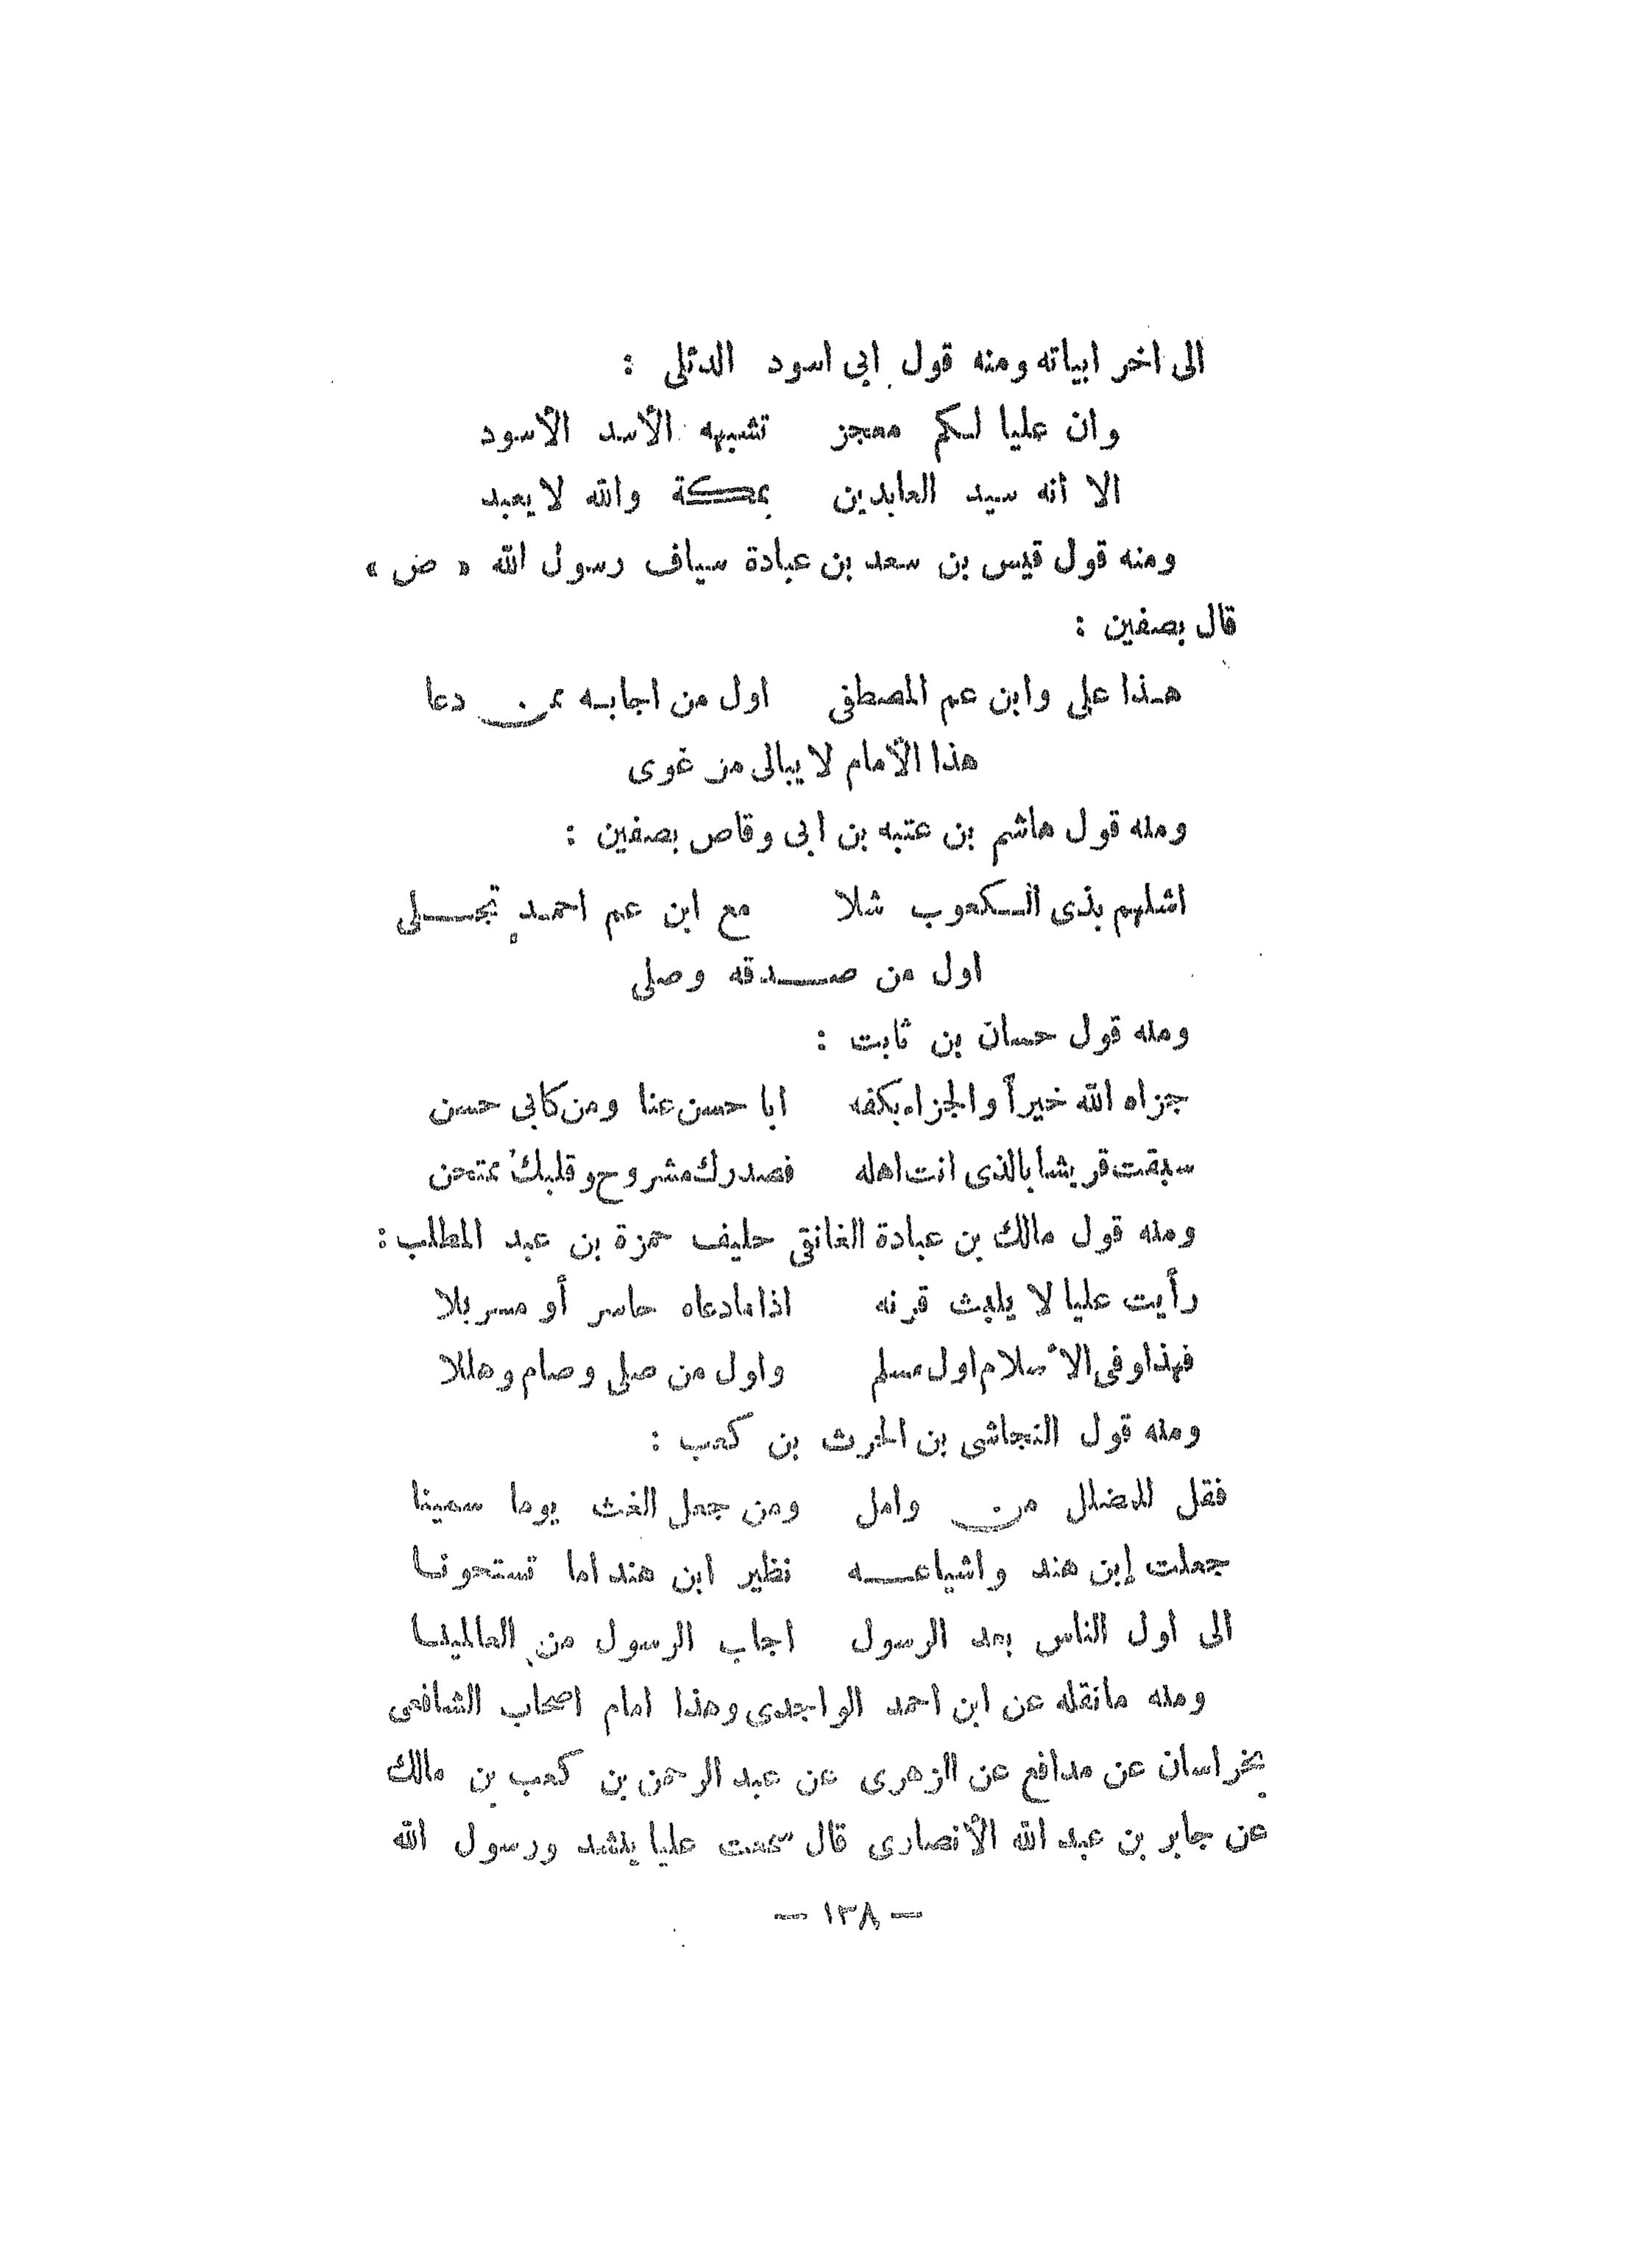 الى اخر ابياته ومنه قول ابى اسود الدئلى :
وان عليا لكم معجز تشبهه الأسد الأسود
الا انه سيد العابدين بمكة والله لا يعبد
ومنه قول قيس بن سعد بن عبادة سياف رسول الله « ص »
قال بصفين :
هذا على وابن عم المصطفى اول من اجابه ممن دعا
هذا الأمام لا يبالى من غوى
ومنه قول هاشم بن عتبه بن ابى وقاص بصفين :
اشلهم بذى الكعوب شلا مع ابن عم احمد تجلى
اول من صدقه وصلى
ومنه قول حسان بن ثابت :
جزاه الله خيراً والجزاء بكفه ابا حسن عنا ومن كابى حسن
سبقت قريشا بالذى انت اهله فصدرك مشروح وقلبك ممتحن
ومنه قول مالك بن عبادة الغانقى حليف حمزة بن عبد المطلب :
رأيت عليا لا يلبث قرنه اذا مادعاه حاسر أو مسربلا
فهذا وفى الأسلام اول مسلم واول من صلى وصام وهللا
ومنه قول النجاشى بن الحرث بن كعب :
فقل للمضلل من وامل ومن جعل الغث يوما سمينا
جعلت إبن هند واشياعه نظير ابن هند اما تستحونا
الى اول الناس بعد الرسول اجاب الرسول من العالمينا
ومنه مانقله عن ابن احمد الواجدى وهذا امام اصحاب الشافعى
بخراسان عن مدافع عن الزهرى عن عبد الرحمن بن كعب بن مالك
عن جابر بن عبد الله الأنصارى قال سمعت عليا ينشد ورسول الله
— ١٣٨ —